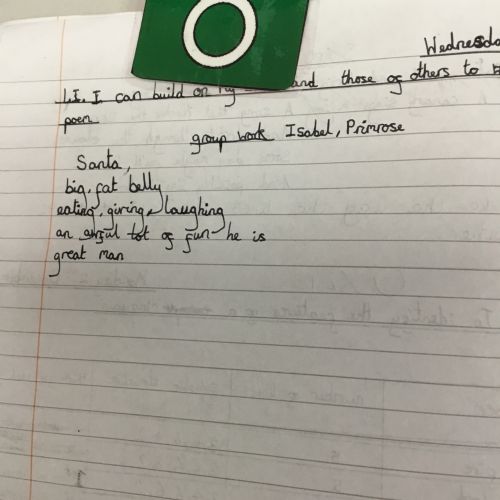 Wednesda
L.I. I can build on my and those of others to
poem
group work Isabel, Primrose
Santa,
big, fat belly
eating, giving, laughing
an awful lot of fun he is
great man
To identify the features of a